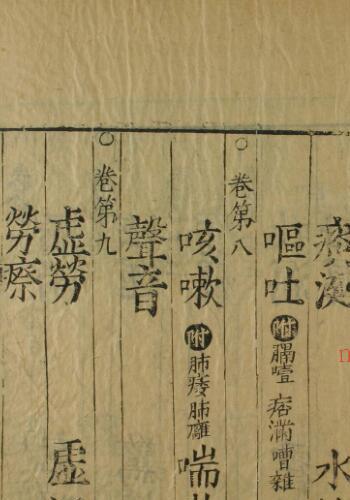 痰
水
嘔吐 附 膈噎 痞滿 嘈雜
○卷第八
咳嗽 附 肺痿肺癰 喘
聲音
○卷第九
虛勞 虛
勞瘵